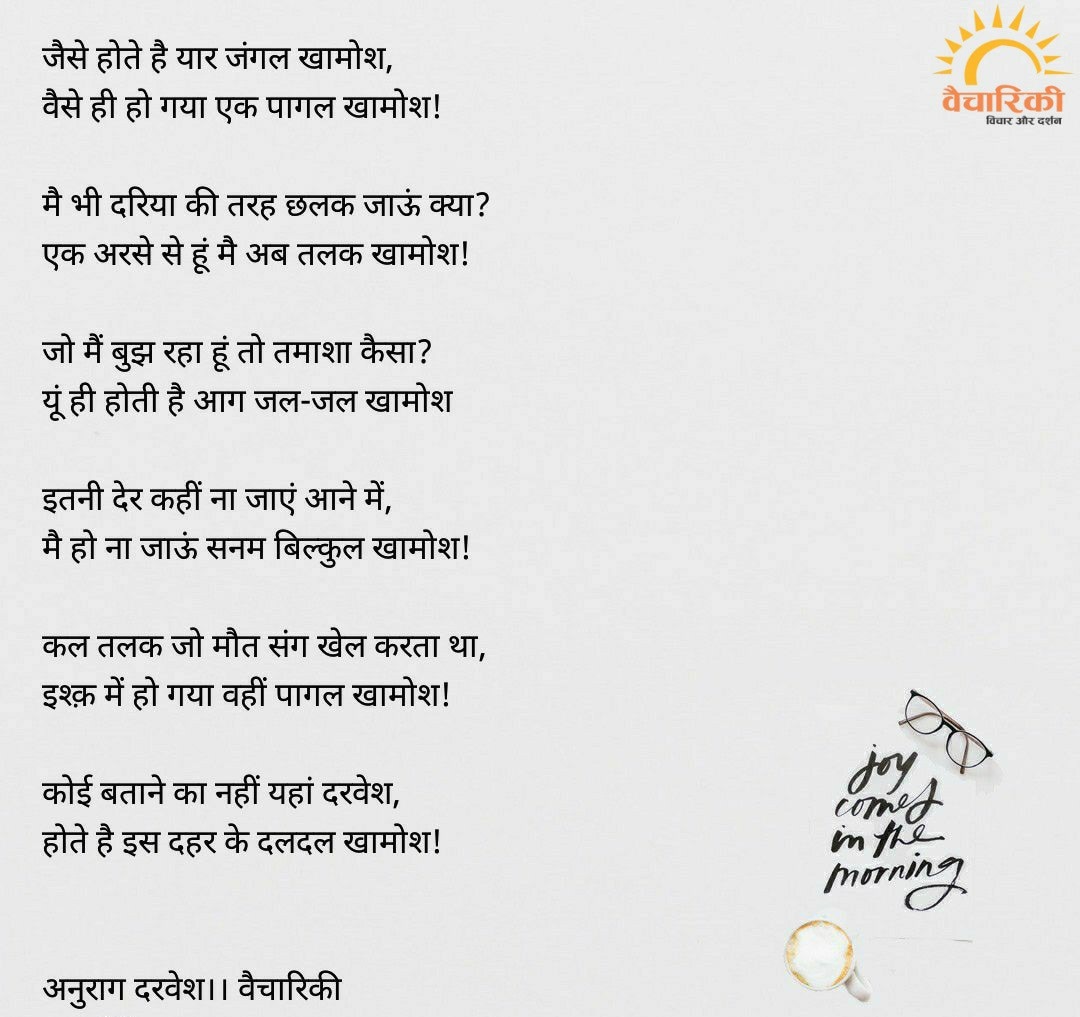 जैसे होते है यार जंगल खामोश,
वैसे ही हो गया एक पागल खामोश!
मै भी दरिया की तरह छलक जाऊं क्या?
एक अरसे से हूं मै अब तलक खामोश!
जो मैं बुझ रहा हूं तो तमाशा कैसा?
यूं ही होती है आग जल-जल खामोश
इतनी देर कहीं ना जाएं आने में,
मै हो ना जाऊं सनम बिल्कुल खामोश!
कल तलक जो मौत संग खेल करता था,
इश्क़ में हो गया वहीं पागल खामोश!
कोई बताने का नहीं यहां दरवेश,
होते है इस दहर के दलदल खामोश!
अनुराग दरवेश।। वैचारिकी
वैचारिकी
विचार और दर्शन
joy
comes
in the
morning